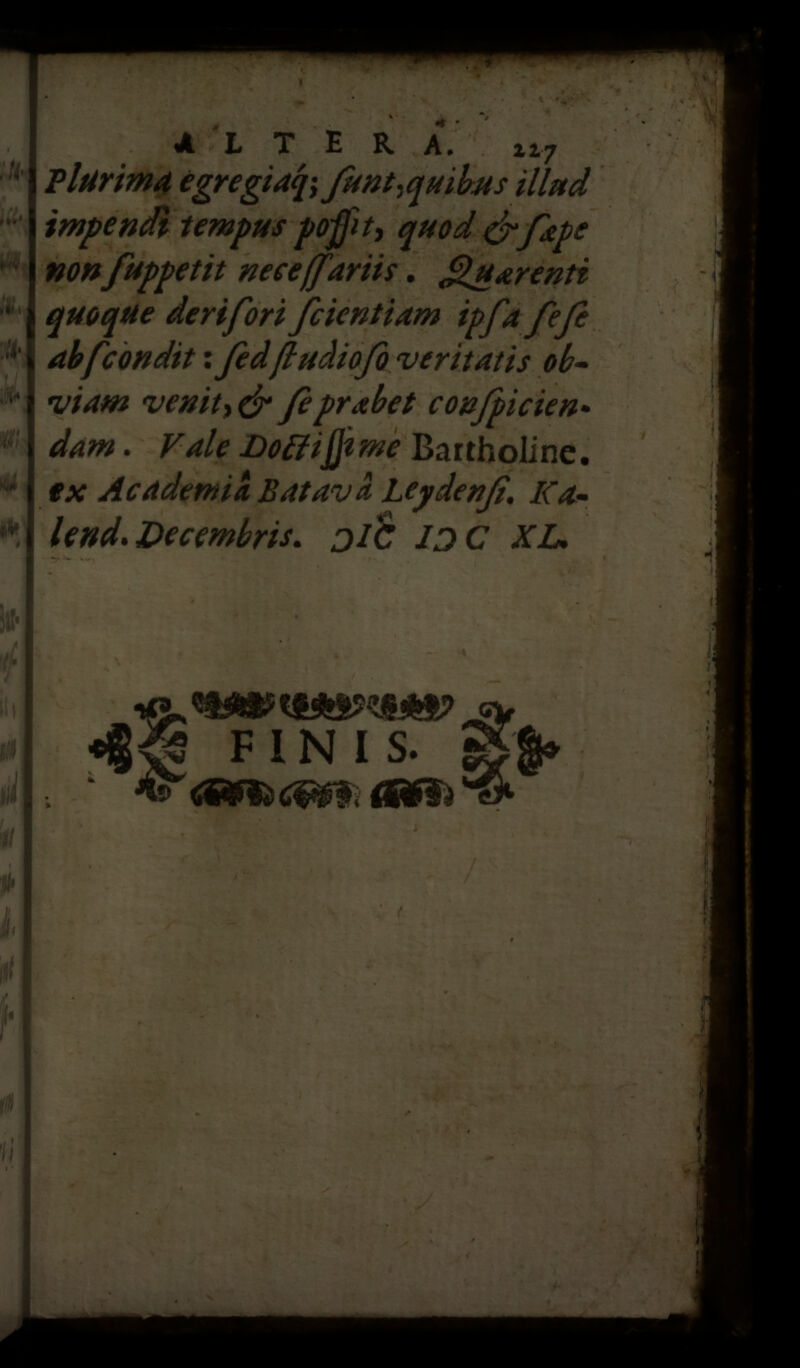 ALTERA. 227
Plurima egregiaq; ſunt, quibus illud
impendi tempus poſſit, quod & ſæpe
non ſuppetit neceſſariis. Quærenti
quoque deriſori ſcientiam ipſa ſeſe
abſcondit: ſed ſtudioſo veritatis ob-
viam venit, & ſe præbet conſpicien-
dam. Vale Doctiſſime Bartholine.
ex Academiâ Batavâ Leydenſi. Ka-
lend. Decembris. ƆIC IƆC XL
FINIS.